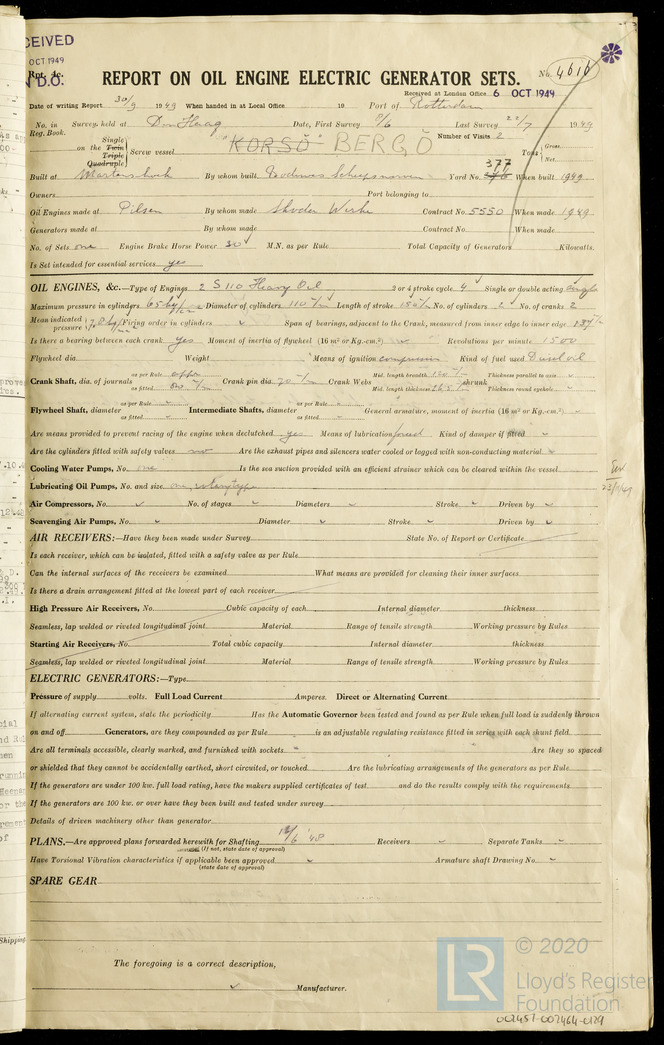 CEIVED
OCT. 1949
Rpt. 4c.
D.O.
REPORT ON OIL ENGINE ELECTRIC GENERATOR SETS.
No. 4616
Received at London Office 6 OCT 1949
Date of writing Report 30/9 1949 When handed in at Local Office 19 Port of Rotterdam
No. in Survey held at Den Haag Date, First Survey 8/6 Last Survey 22/7 1949
Reg. Book. Number of Visits 2
on the Single Twin Triple Quadruple Screw vessel "KORSÖ" BERGÖ Tons Gross Net
Built at Martenshoek By whom built Bodewes Scheepswerven Yard No. 377 When built 1949
Owners Port belonging to
Oil Engines made at Pilsen By whom made Skoda Werke Contract No. 5550 When made 1949
Generators made at By whom made Contract No. When made
No. of Sets one Engine Brake Horse Power 30 M.N. as per Rule Total Capacity of Generators Kilowatts.
Is Set intended for essential services yes
OIL ENGINES, &c.—Type of Engines 2 S 110 Heavy Oil 2 or 4 stroke cycle 4 Single or double acting single
Maximum pressure in cylinders 65 kg/cm² Diameter of cylinders 110 m/m Length of stroke 150 m/m No. of cylinders 2 No. of cranks 2
Mean indicated pressure Firing order in cylinders Span of bearings, adjacent to the Crank, measured from inner edge to inner edge 137 m/m
Is there a bearing between each crank yes Moment of inertia of flywheel (16 m² or Kg.-cm.²) Revolutions per minute 1500
Flywheel dia. Weight Means of ignition compression Kind of fuel used Diesel oil
Crank Shaft, dia. of journals as per Rule approved as fitted 80 m/m Crank pin dia. 70 m/m Crank Webs Mid. length breadth Mid. length thickness shrunk Thickness parallel to axis Thickness round eyehole
Flywheel Shaft, diameter as per Rule as fitted Intermediate Shafts, diameter as per Rule as fitted General armature, moment of inertia (16 m² or Kg.-cm.²)
Are means provided to prevent racing of the engine when declutched yes Means of lubrication forced Kind of damper if fitted
Are the cylinders fitted with safety valves no Are the exhaust pipes and silencers water cooled or lagged with non-conducting material
Cooling Water Pumps, No. one Is the sea suction provided with an efficient strainer which can be cleared within the vessel
Lubricating Oil Pumps, No. and size one, rotary type
Air Compressors, No. No. of stages Diameters Stroke Driven by
Scavenging Air Pumps, No. Diameter Stroke Driven by
AIR RECEIVERS:—Have they been made under Survey State No. of Report or Certificate
Is each receiver, which can be isolated, fitted with a safety valve as per Rule
Can the internal surfaces of the receivers be examined What means are provided for cleaning their inner surfaces
Is there a drain arrangement fitted at the lowest part of each receiver
High Pressure Air Receivers, No. Cubic capacity of each Internal diameter thickness
Seamless, lap welded or riveted longitudinal joint Material Range of tensile strength Working pressure by Rules
Starting Air Receivers, No. Total cubic capacity Internal diameter thickness
Seamless, lap welded or riveted longitudinal joint Material Range of tensile strength Working pressure by Rules
ELECTRIC GENERATORS:—Type
Pressure of supply volts. Full Load Current Amperes. Direct or Alternating Current
If alternating current system, state the periodicity Has the Automatic Governor been tested and found as per Rule when full load is suddenly thrown
on and off Generators, are they compounded as per Rule is an adjustable regulating resistance fitted in series with each shunt field
Are all terminals accessible, clearly marked, and furnished with sockets Are they so spaced
or shielded that they cannot be accidentally earthed, short circuited, or touched Are the lubricating arrangements of the generators as per Rule
If the generators are under 100 kw. full load rating, have the makers supplied certificates of test and do the results comply with the requirements
If the generators are 100 kw. or over have they been built and tested under survey
Details of driven machinery other than generator
PLANS.—Are approved plans forwarded herewith for Shafting 18/6 '48 Receivers Separate Tanks
(If not, state date of approval)
Have Torsional Vibration characteristics if applicable been approved Armature shaft Drawing No.
(state date of approval)
SPARE GEAR
The foregoing is a correct description,
Manufacturer.
LR © 2020
Lloyd's Register
Foundation
002457-002464-0129